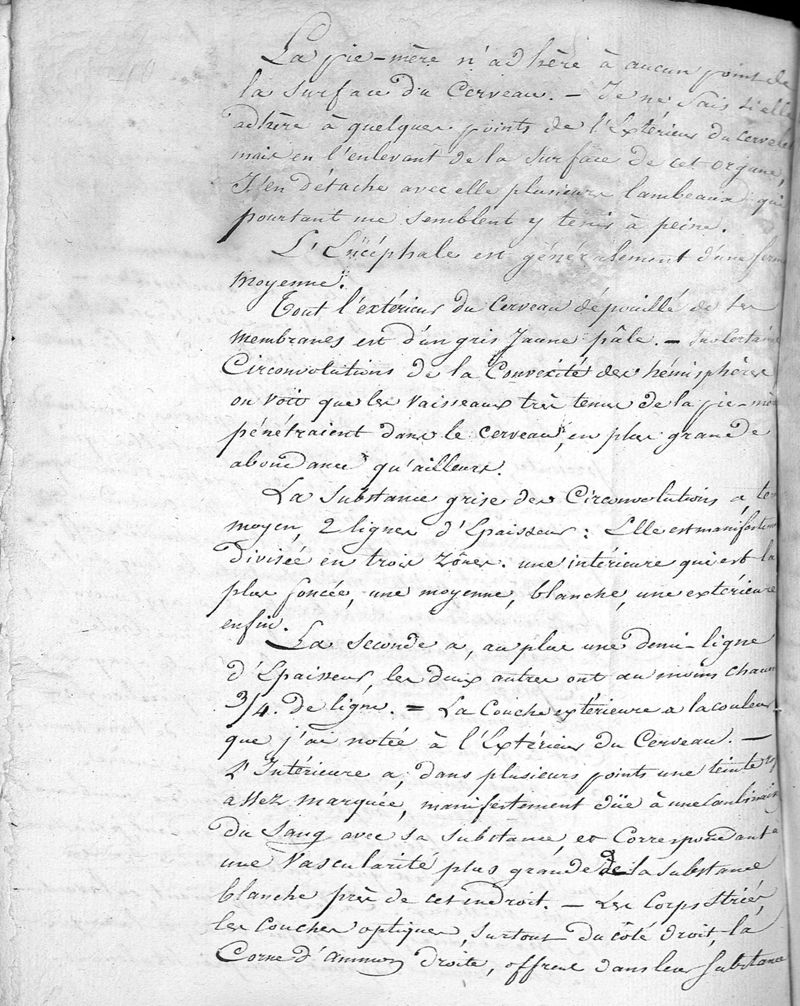 La pie-mère n'adhère à aucun point de
la surface du Cerveau. — Je ne sais si elle
adhère à quelques points de l'Extérieur du cervelet
mais en l'enlevant de la surface de cet organe,
J'en détache avec elle plusieurs lambeaux qui
pourtant me semblent y tenir à peine.
L'Encéphale est généralement d'une ferm
moyenne.
Tout l'extérieur du Cerveau dépouillé de ses
membranes est d'un gris Jaune pâle. — Sur Certaines
Circonvolutions de la Convexité des hémisphères
on voit que les vaisseaux très tenus de la pie-mè
pénétraient dans le cerveau, en plus grande
abondance qu'ailleurs.
La substance grise des Circonvolutions a, te
moyen, 2 lignes d'Epaisseur : Elle est manifestem
divisée en trois zônes. une intérieure qui est la
plus foncée, une moyenne, blanche, une extérieure
enfin.
La seconde a, au plus une demi-ligne
d'Epaisseur, les deux autres ont au moins chacun
3/4. de ligne. = La Couche extérieure a la couleur
que j'ai notée à l'Extérieur du Cerveau. —
L'Intérieure a, dans plusieurs points une teinte
assez marquée, manifestement düe à une Combinais
du Sang avec sa substance, et Correspondant à
une Vascularité plus grande de la substance
blanche près de cet endroit. — Les Corps Striés,
les Couches optiques, surtout du côté droit, la
Corne d'ammon droite, offrent dans leur Substance